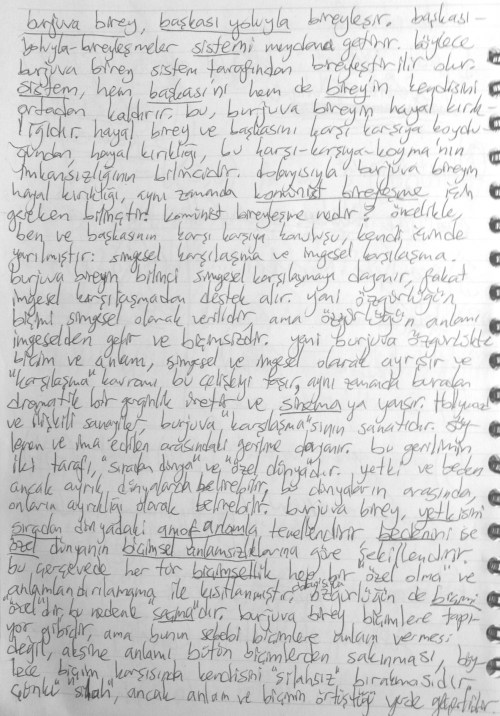 burjuva birey, başkası yoluyla bireyleşir. başkası-
yoluyla-bireyleşmeler sistemi meydana getirir. böylece
burjuva birey sistem tarafından bireyleştirilir olur.
sistem, hem başkasını hem de bireyin kendisini
ortadan kaldırır. bu, burjuva bireyin hayal kırık-
lığıdır. hayal birey ve başkasını karşı karşıya koydu-
ğundan, hayal kırıklığı, bu karşı-karşıya-koyma'nın
imkansızlığının bilincidir. dolayısıyla burjuva bireyin
hayal kırıklığı, aynı zamanda komünist bireyleşme için
gereken bilinçtir. komünist bireyleşme nedir? öncelikle,
ben ve başkasının karşı karşıya konuluşu, kendi içinde
yarılmıştır: simgesel karşılaşma ve imgesel karşılaşma.
burjuva bireyin bilinci simgesel karşılaşmaya dayanır, fakat
imgesel karşılaşmadan destek alır. yani özgürlüğün
biçimi simgesel olarak verilidir, ama özgürlüğün anlamı
imgeselden gelir ve biçimsizdir. yani burjuva özgürlükte
biçim ve anlam, simgesel ve imgesel olarak ayrışır ve
"karşılaşma" kavramı, bu çelişkiyi taşır, aynı zamanda buradan
dramatik bir gerginlik üretir ve sinemaya yansır. Hollywood
ve ilişkili sanayiler, burjuva "karşılaşma"sının sanatıdır. söy-
lenen ve ima edilen arasındaki gerilime dayanır. bu gerilimin
iki tarafı, "sıradan dünya" ve "özel dünya"dır. yetki ve beden
ancak ayrık dünyalarda belirebilir, bu dünyaların arasında,
onların ayrıklığı olarak belirebilir. burjuva birey, yetkisini
sıradan dünyadaki amorf anlamla temellendirir bedenini ise
özel dünyanın biçimsel anlamsızlıklarına göre şekillendirir.
bu çerçevede her tür biçimsellik hep bir "özel olma" ve
anlamlandırılamama ile kısıtlanmıştır. özgürlüğün de biçimi
"özel"dir, bu nedenle "saçma"dır. burjuva birey biçimlere tapı-
yor gibidir, ama bunun sebebi biçimlere anlam vermesi
değil, aksine anlamı bütün biçimlerden sakınması, böy-
lece biçim karşısında kendisini "silahsız" bırakmasıdır,
çünkü "silah", ancak anlam ve biçimin örtüştüğü yerde geçerlidir.